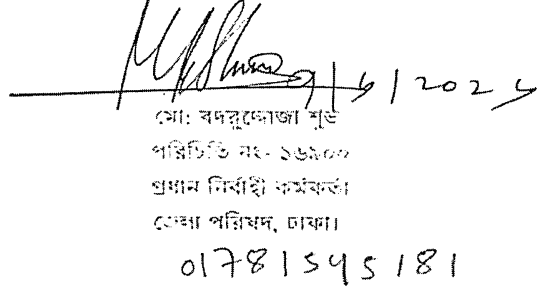 মো: বদরুদ্দোজা শুভ
পরিচিতি নং- ১৬৯০০
প্রধান নির্বাহী কর্মকর্তা
জেলা পরিষদ, ঢাকা।
01781545181